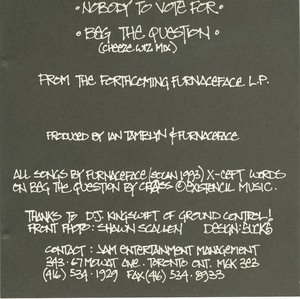 • NOBODY TO VOTE FOR •
• BEG THE QUESTION •
(CHEEZE WIZ MIX)
FROM THE FORTHCOMING FURNACEFACE L.P.
PRODUCED BY IAN TAMBLYN & FURNACEFACE
ALL SONGS BY FURNACEFACE (SOCAN 1993) X-CEPT WORDS
ON BEG THE QUESTION BY CRASS © EXISTENCIL MUSIC.
THANKS TO D.J. KINGSWIFT OF GROUND CONTROL!
FRONT PHOTO: SHAWN SCALLEN DESIGN:
CONTACT: JAM ENTERTAINMENT MANAGEMENT
343 - 67 MOWAT AVE. TORONTO ONT. M6K 3E3
(416) 534-1929 FAX (416) 534-8933